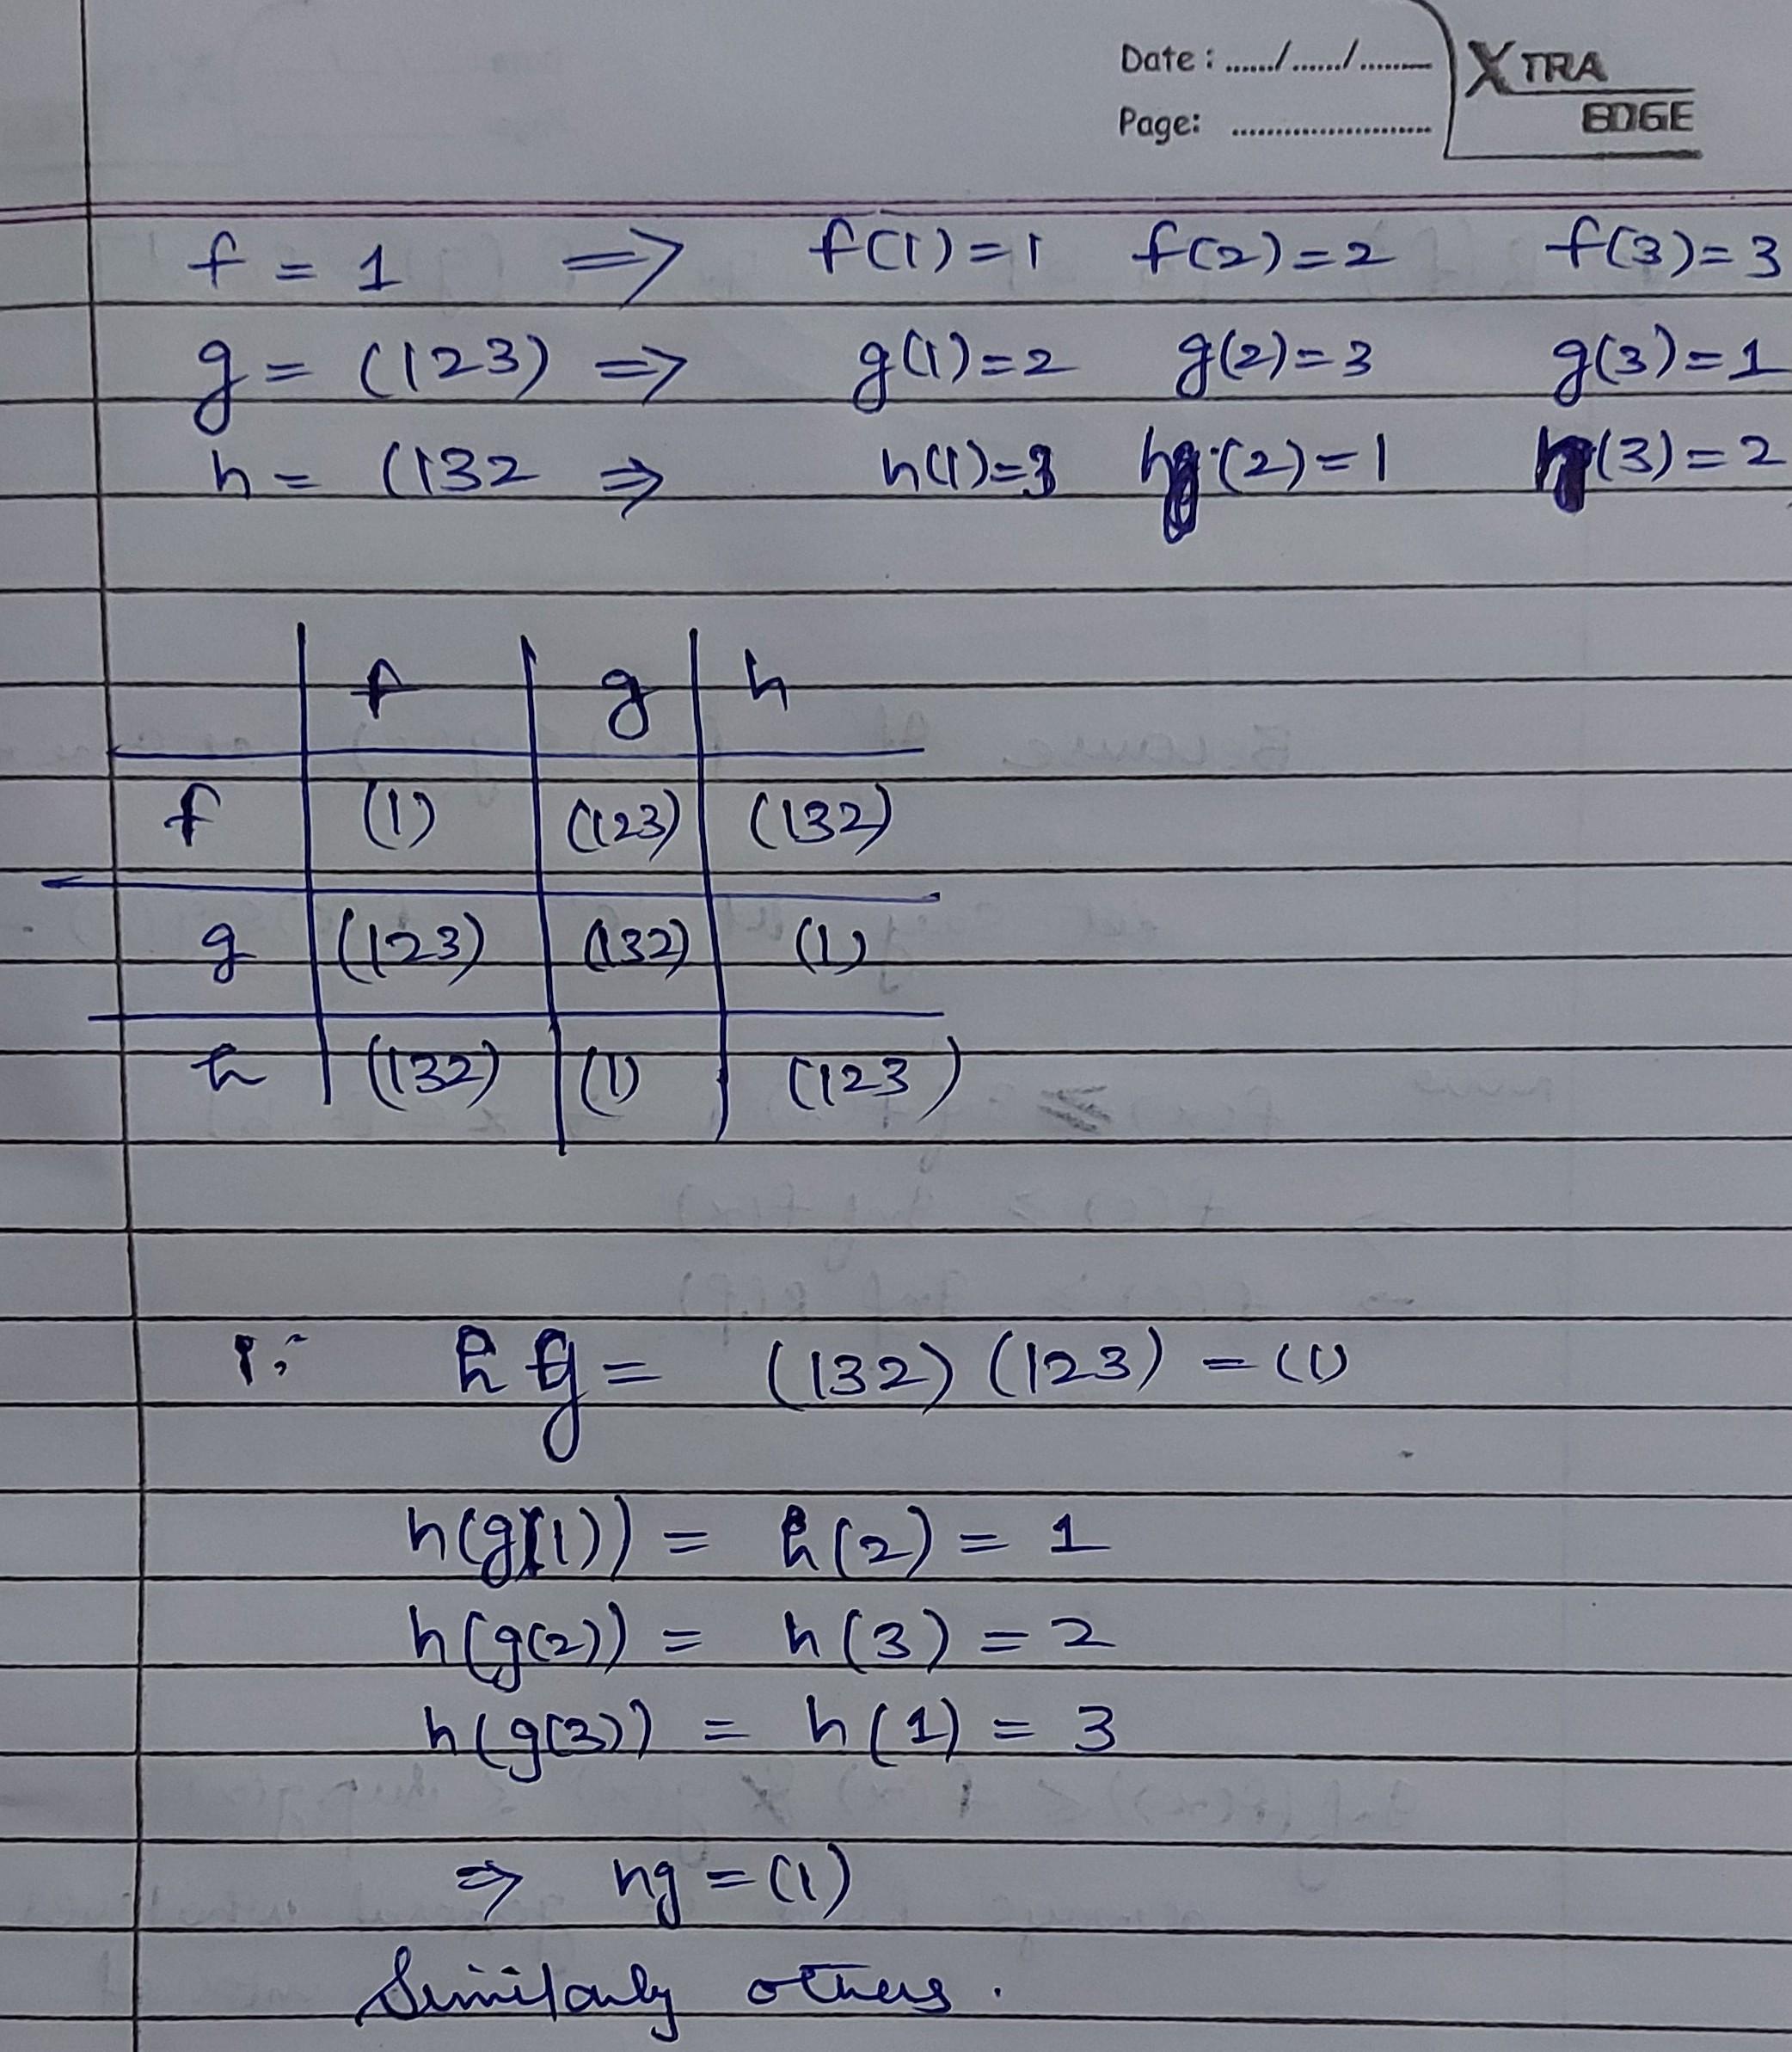 Date : ....../....../.........
Page: ........................
XTRA
EDGE
f = 1 ⇒ f(1)=1 f(2)=2 f(3)=3
g = (123) ⇒ g(1)=2 g(2)=3 g(3)=1
h = (132 ⇒ h(1)=3 h(2)=1 h(3)=2
f g h
f (1) (123) (132)
g (123) (132) (1)
h (132) (1) (123)
hg = (132) (123) = (1)
h(g(1)) = h(2) = 1
h(g(2)) = h(3) = 2
h(g(3)) = h(1) = 3
⇒ hg = (1)
Similarly others.